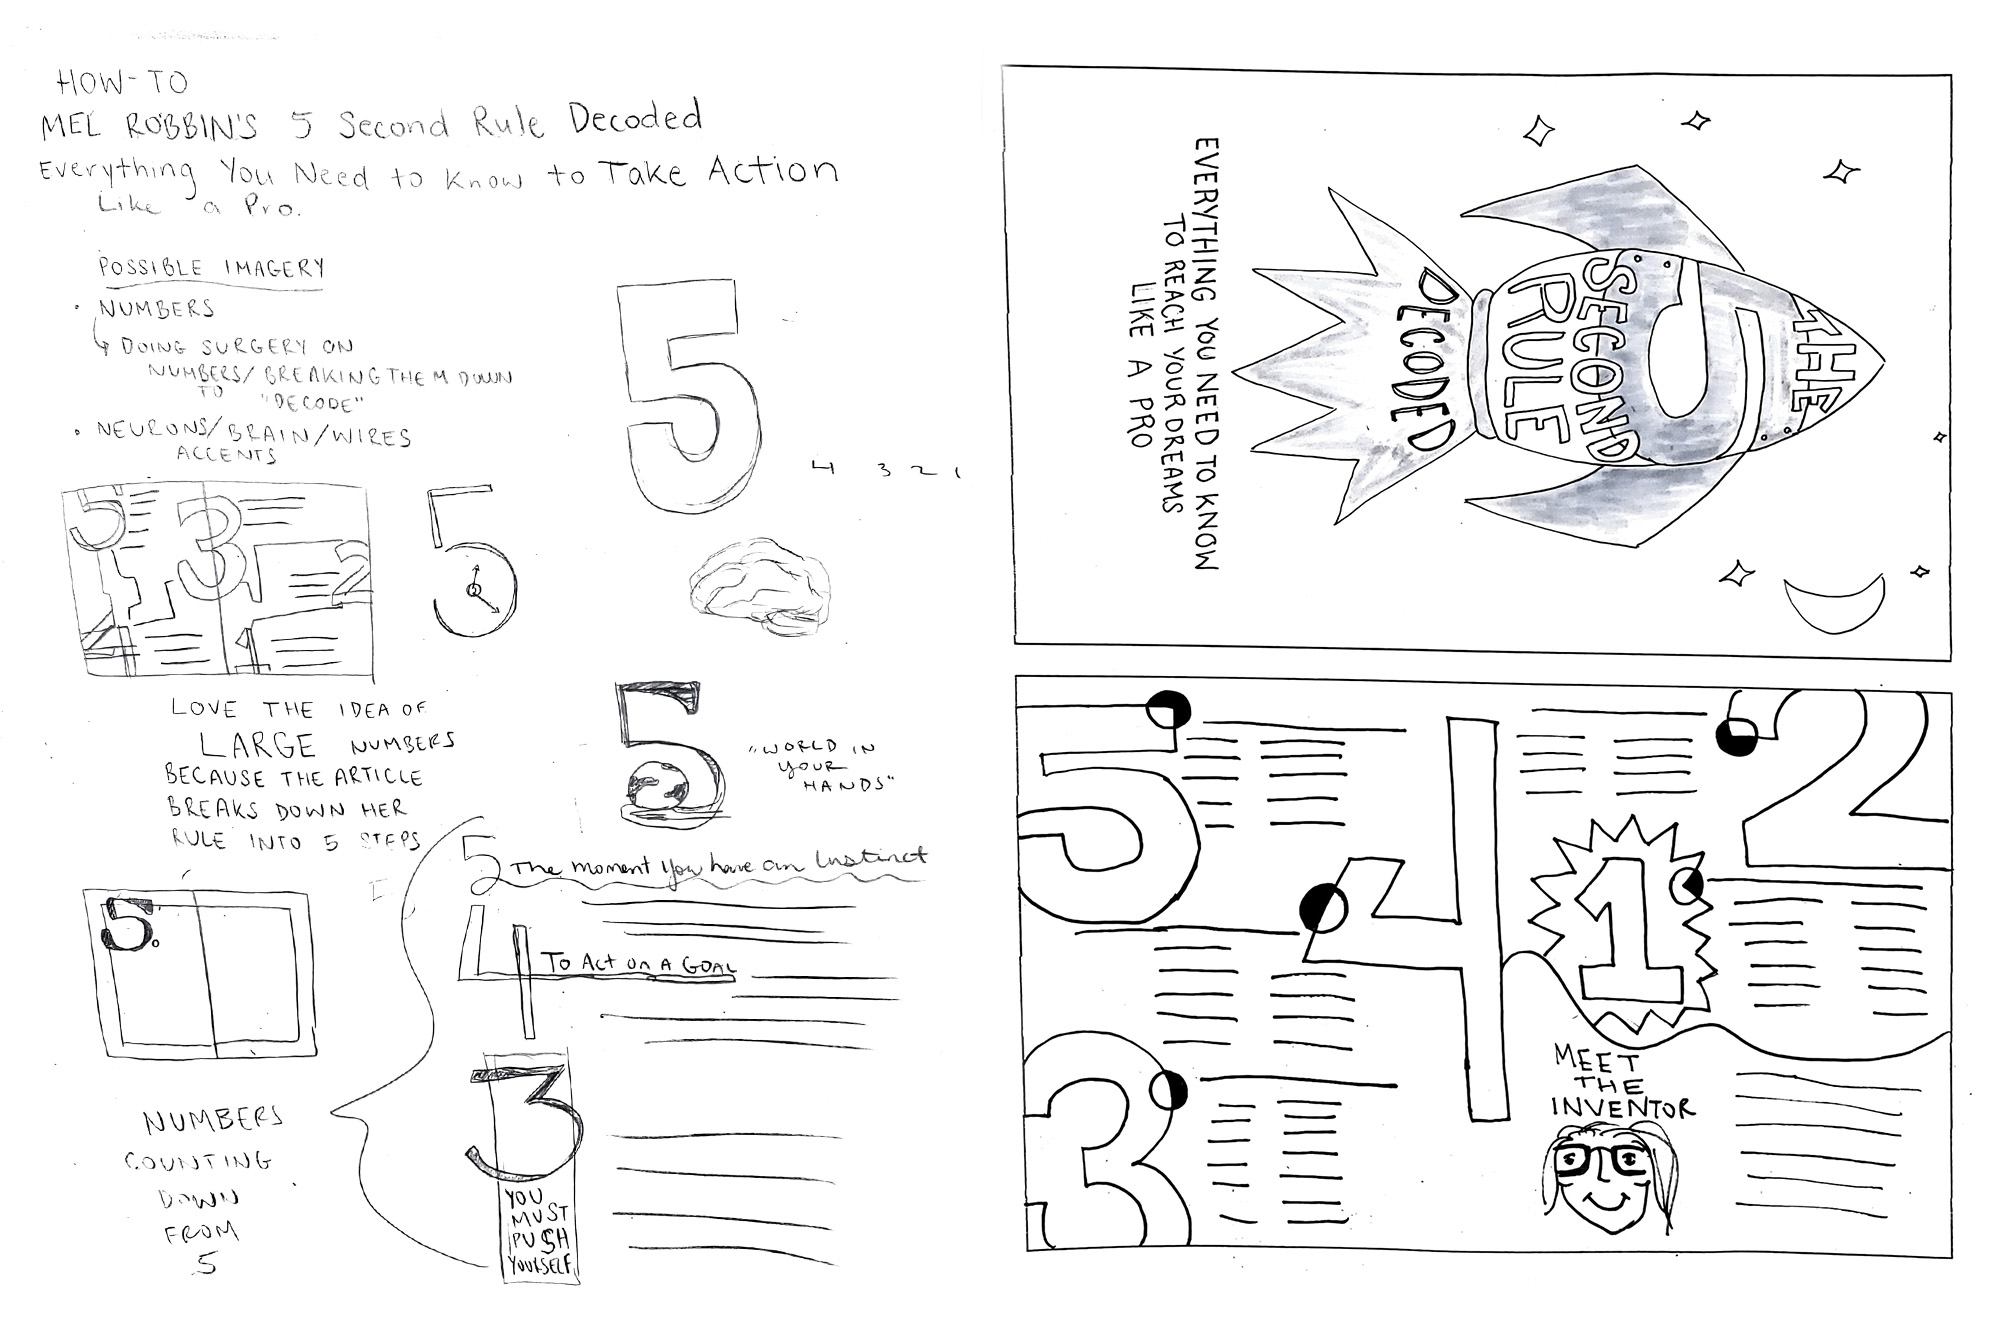 HOW-TO
MEL ROBBIN'S 5 Second Rule Decoded
Everything You Need to Know to Take Action
Like a Pro.
POSSIBLE IMAGERY
• NUMBERS
↳ DOING SURGERY ON
NUMBERS/BREAKING THEM DOWN
TO "DECODE"
• NEURONS/BRAIN/WIRES
ACCENTS
5
4 3 2 1
5 3 2
4 1
5
LOVE THE IDEA OF
LARGE NUMBERS
BECAUSE THE ARTICLE
BREAKS DOWN HER
RULE INTO 5 STEPS
5
"WORLD IN
YOUR
HANDS"
5.
NUMBERS
COUNTING
DOWN
FROM
5
5 The moment you have an Instinct
4 To Act on A GOAL
3
YOU
MUST
PUSH
YOURSELF
THE
5
SECOND
RULE
DECODED
EVERYTHING YOU NEED TO KNOW
TO REACH YOUR DREAMS
LIKE A PRO
5
4
3
2
1
MEET
THE
INVENTOR